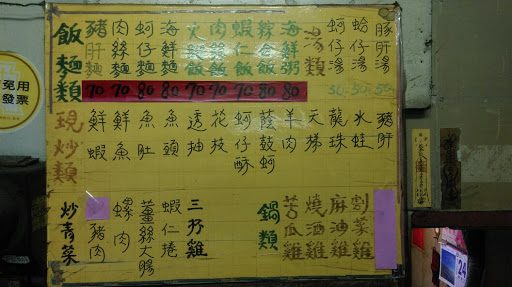 飯麵類
豬肝麵 70
肉絲麵 70
蚵仔麵 80
海鮮麵 80
飯 70
肉絲飯 70
蝦仁飯 70
綜合飯 80
海鮮粥 80
湯類
蚵仔湯 50
蛤仔湯 50
豚肝湯 50
現炒類
鮮蝦
鮮魚
魚肚
魚頭
透抽
花枝
蚵仔酥
蔭鼓蚵
羊肉
天梯
龍珠
水蛙
豬肝
炒青菜
豬肉
螺肉
薑絲大腸
蝦仁捲
三杯雞
鍋類
苦瓜雞
燒酒雞
麻油雞
割菜雞
免用
發票
24